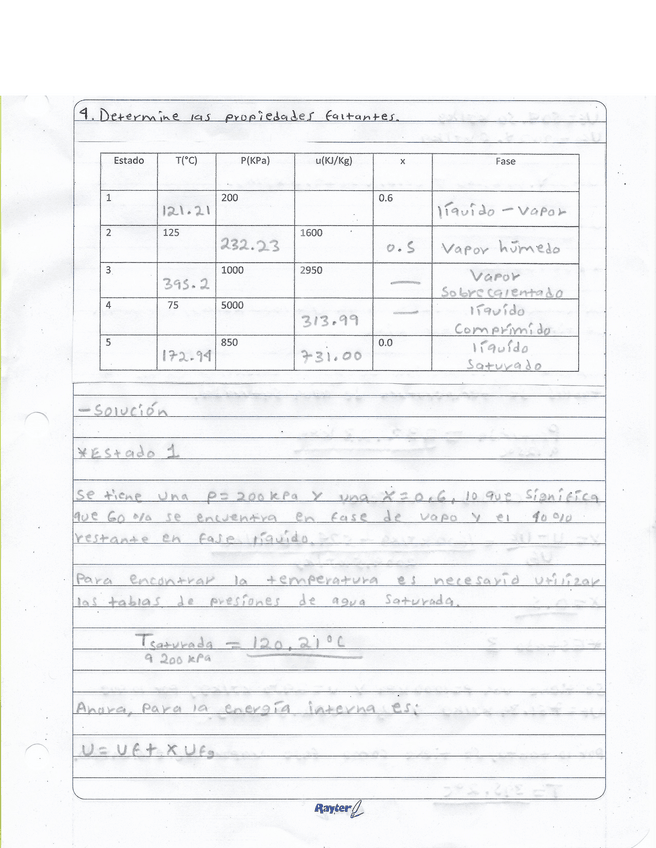 4. Determine las propiedades faltantes.
Estado T(°C) P(KPa) u(KJ/Kg) x Fase
1 121.21 200 0.6 líquido - Vapor
2 125 232.23 1600 0.5 Vapor húmedo
3 395.2 1000 2950 — Vapor Sobrecalentado
4 75 5000 313.99 — líquido Comprimido
5 172.94 850 731.00 0.0 líquido Saturado
- Solución
* Estado 1
Se tiene una P = 200 kPa y una X = 0,6, lo que significa
que 60 % se encuentra en fase de vapo y el 40 %
restante en fase líquido.
Para encontrar la temperatura es necesario utilizar
las tablas de presiones de agua saturada.
Tsaturada = 120,21°C
a 200 kPa
Ahora, para la energía interna es;
U = Uf + X Ufg
Rayter